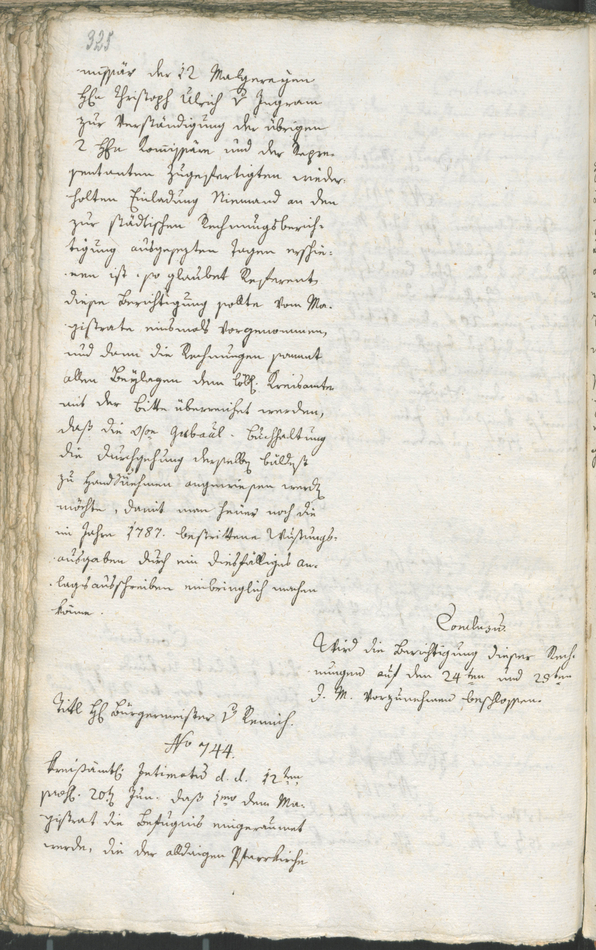 325
missär der 12 Malgereyen
Hrn Christoph Ulrich v Ingram
zur Verständigung der übrigen
2 Hrn Kommissäre und der Repre-
sentanten zugefertigten wieder-
holten Einladung Niemand an den
zur städtischen Rechnungsberich-
tigung ausgesezten Tagen erschie-
nen ist, so glaubet Referent,
diese Berichtigung sollte vom Ma-
gistrate einsmals vorgenommen,
und dann die Rechnungen sammt
allen Beylagen dem löbl. Kreisamte
mit der Bitte überreichet werden,
daß die Buchhaltung
die Durchgehung derselben bäldest
zu Handen nehmen angewiesen werde
möchte, damit man heuer noch die
im Jahre 1787. bestrittene Wustungs-
ausgaben durch ein diesfälliges An-
lagsausschreiben einbringlich machen
könne.
Conclusum.
Wird die Berichtigung dieser Rech-
nungen auf den 24ten und 28ten
d. M. vorzunehmen beschlossen.
Titl Hr Bürgermeister v Remich.
No 744.
Kreisämtl. Intimatum d. d. 12ten
praes. 20ten Jun. daß imo dem Ma-
gistrat die Befugnis eingeraumet
werde, die der alldaigen Pfarrkirche